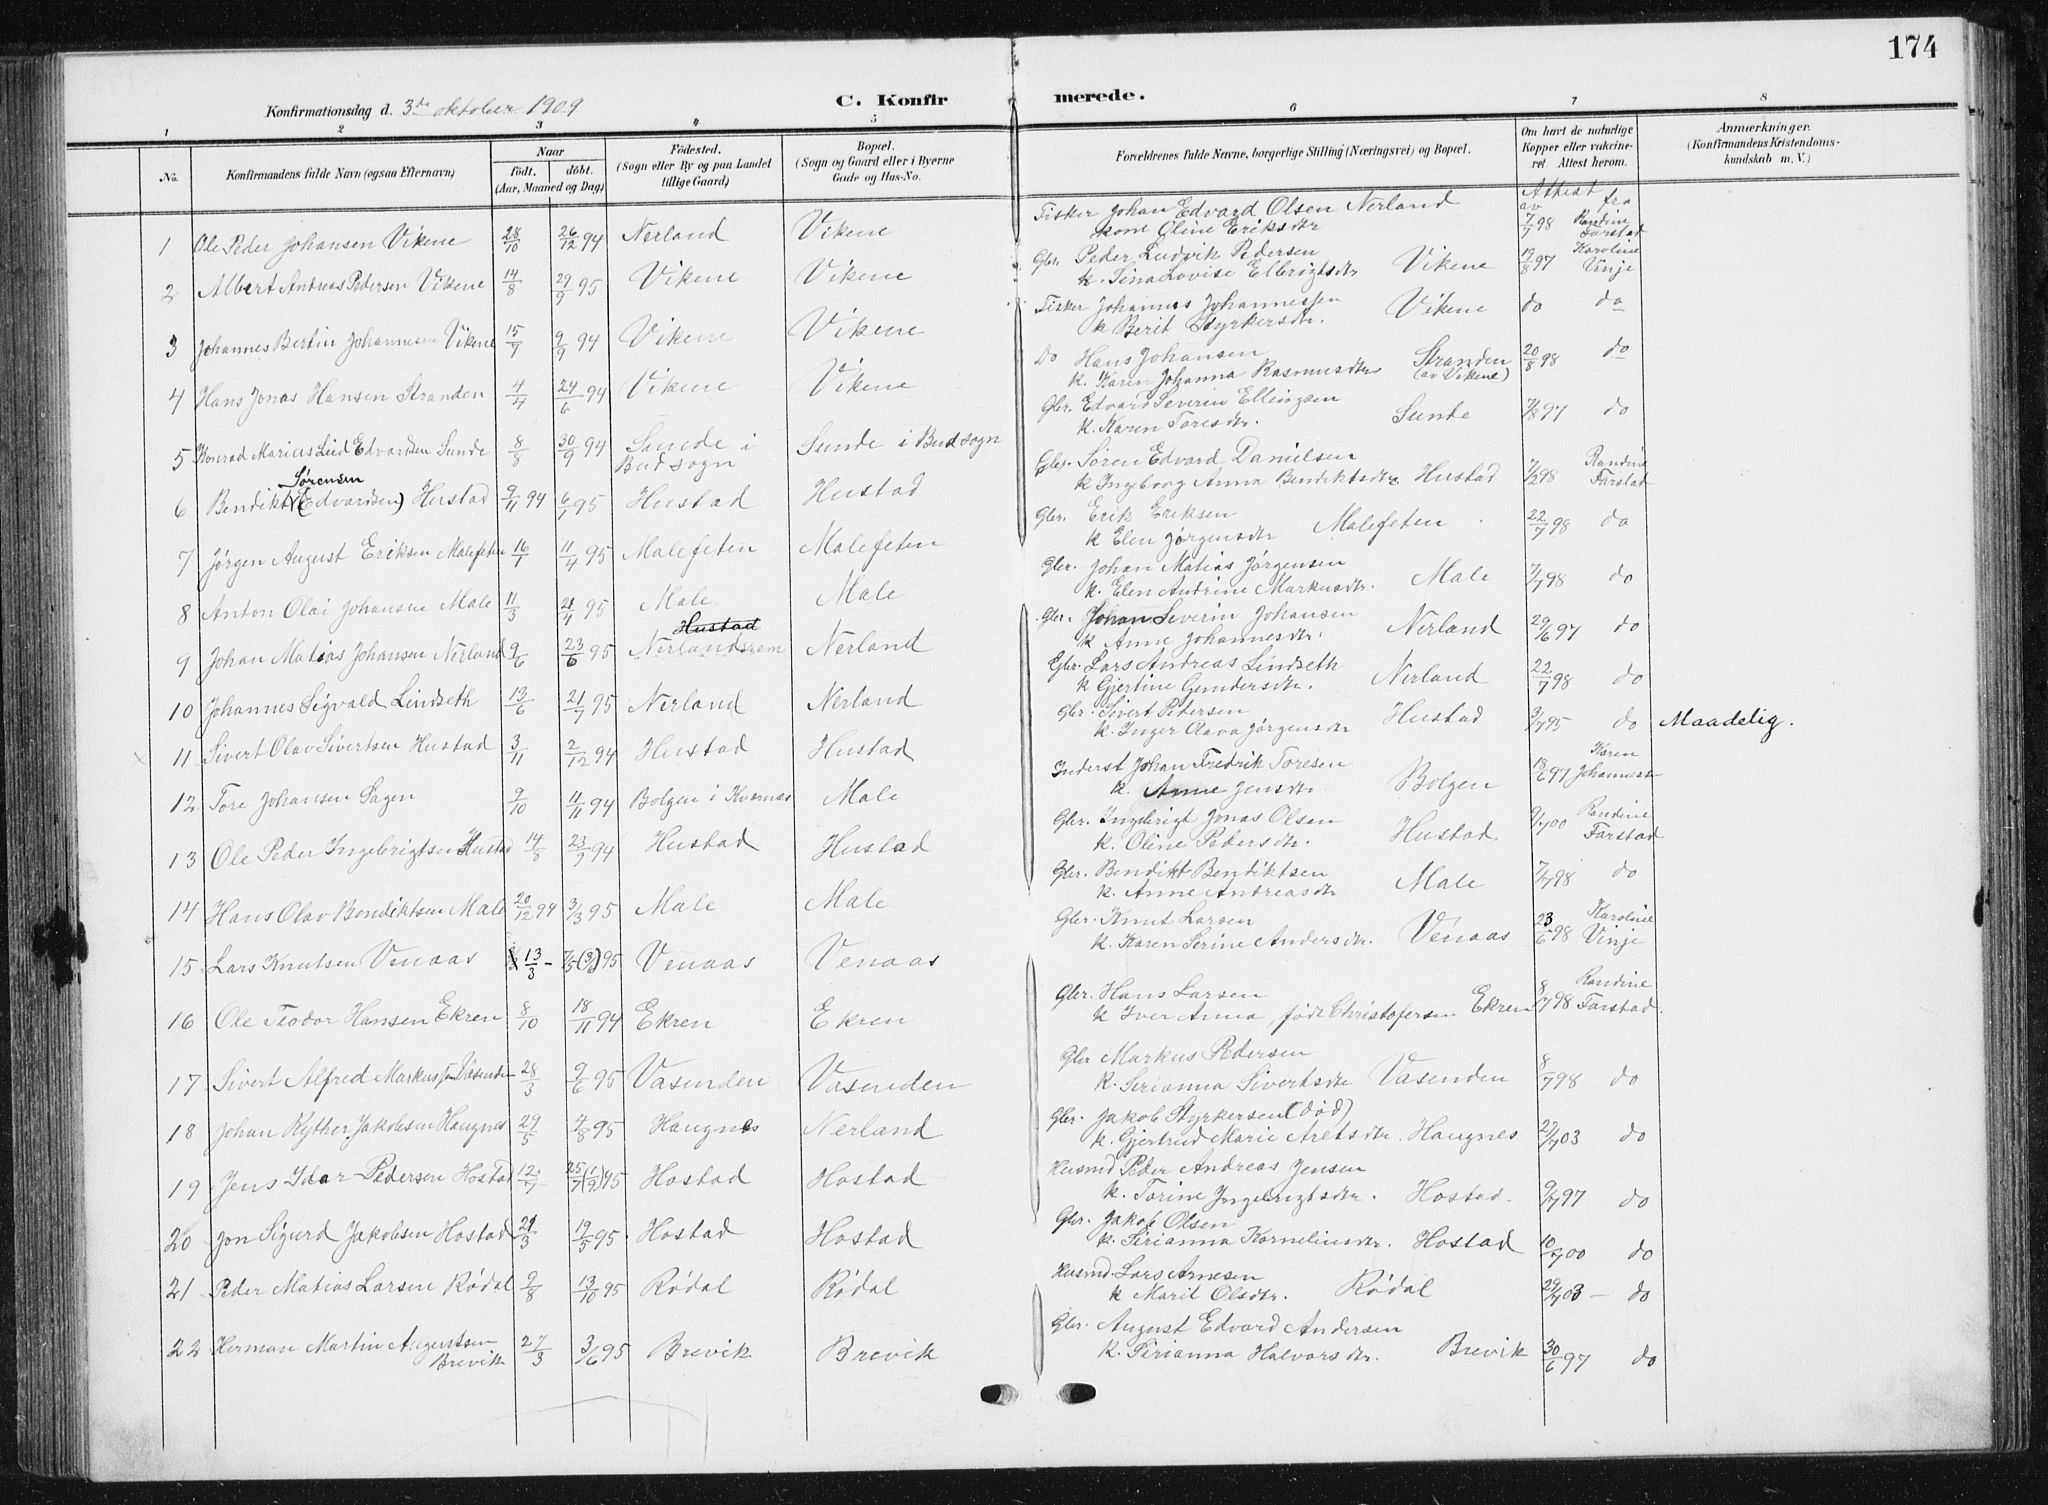 174
Konfirmationsdag d. 3de oktober 1909
C. Konfirmerede.
1 2 3 4 5 6 7 8
No. Konfirmandens fulde Navn (ogsaa Efternavn) Naar født. døbt. (Aar, Maaned og Dag) Fødested. (Sogn eller By og paa Landet tillige Gaard) Bopæl. (Sogn og Gaard eller i Byerne Gade og Hus-No. Forældrenes fulde Navne, borgerlige Stilling (Næringsvei) og Bopæl. Om havt de naturlige Kopper eller vakcineret. Attest herom. Anmærkninger. (Konfirmandens Kristendomskundskab m. V.)
Attest av fra
1 Ole Peder Johansen Vikene 28/10 26/12 94 Nerland Vikene Fisker Johan Edvard Olsen Nerland 7/7 98 Randine Farstad
kone Oline Eriksdtr
2 Albert Andreas Pedersen Vikene 14/8 29/9 95 Vikene Vikene Gbr. Peder Ludvik Pedersen Vikene 19/8 97 Karoline Vinje
k. Sina Lovise Elbrigtsdtr
3 Johannes Bertin Johannesen Vikene 15/7 9/9 94 Vikene Vikene Fisker Johannes Johannessen Vikene do do
k Berit Styrkersdtr.
4 Hans Jonas Hansen Stranden 4/4 24/6 94 Vikene Vikene Do Hans Johansen Stranden (av Vikene) 20/8 98 do
k. Karen Johanna Rasmusdtr
5 Konrad Marius Leid Edvardsen Sunde 8/8 30/9 94 Sunde i Bud sogn Sunde i Bud sogn Gbr. Edvard Severin Ellingsen Sunde 7/8 97 do
k. Karen Toresdtr.
6 Bendikt Sørensen (Edvardsen) Hustad 9/11 94 6/1 95 Hustad Hustad Gbr. Søren Edvard Danielsen Hustad 7/2 98 Randine Farstad
k Ingeborg Anna Bendiktsdtr
7 Jørgen August Eriksen Malefeten 16/1 11/4 95 Malefeten Malefeten Gbr. Erik Eriksen Malefeten 22/7 98 do
k Elen Jørgensdtr
8 Anton Olai Johansen Male 11/3 21/4 95 Male Male Gbr. Johan Matias Jørgensen Male 7/7 98 do
k. Elen Andrine Markusdtr.
9 Johan Matias Johansen Nerland 9/6 23/6 95 Hustad Nerlandsrem Nerland Gbr. Johan Severin Johansen Nerland 29/6 97 do
k Anne Johannesdtr.
10 Johannes Sigvald Lindseth 13/6 21/7 95 Nerland Nerland Gbr. Lars Andreas Lindseth Nerland 22/7 98 do
k Gjertine Gundersdtr.
11 Sivert Olav Sivertsen Hustad 3/11 2/12 94 Hustad Hustad Gbr. Sivert Pedersen Hustad 3/7 95 do Maadelig.
k. Inger Olava Jørgensdtr
12 Tore Johansen Sagen 9/10 11/11 94 Bolgen i Kvernæs Male Inderst Johan Fredrik Toresen Bolgen 18/6 97 Karen Johannesen
k. Anne Jensdtr.
13 Ole Peder Ingebrigtsen Hustad 14/8 23/9 94 Hustad Hustad Gbr. Ingebrigt Jonas Olsen Hustad 9/7 00 Randine Farstad
k. Oline Pedersdtr.
14 Hans Olav Bendiktsen Male 20/12 94 3/3 95 Male Male Gbr. Bendikt Bendiktsen Male 7/7 98 do
k. Anne Andreasdtr
15 Lars Knutsen Venaas 13/3 - 7/5 (3/6) 95 Venaas Venaas Gbr. Knut Larsen Venaas 23/6 98 Karoline Vinje
k. Karen Serine Andersdtr.
16 Ole Teodor Hansen Ekren 8/10 18/11 94 Ekren Ekren Gbr. Hans Larsen Ekren 8/7 98 Randine Farstad.
k Iver Anna, født Christofersen
17 Sivert Alfred Markussen Vasenden 28/3 9/6 95 Vasenden Vasenden Gbr Markus Pedersen Vasenden 8/7 98 do
k. Serianna Sivertsdtr
18 Johan Ryther Jakobsen Haugnes 29/5 4/8 95 Haugnes Nerland Gbr. Jakob Styrkersen (død) Haugnes 27/7 03 do
k. Gjertrud Marie Aretsdtr.
19 Jens Idar Pedersen Hostad 12/7 25/7 (1/9) 95 Hostad Hostad Husmd Peder Andreas Jensen Hostad 9/7 97 do
k. Torine Ingebrigtsdtr.
20 Jon Sigurd Jakobsen Hostad 21/3 19/5 95 Hostad Hostad Gbr. Jakob Olsen Hostad 10/7 00 do
k. Serianna Korneliusdtr.
21 Peder Matias Larsen Rødal 9/8 13/10 95 Rødal Rødal Husmd Lars Arnesen Rødal 29/7 03 - do
k Marit Olsdtr.
22 Herman Martin Augustsen Brevik 27/3 3/6 95 Brevik Brevik Gbr. August Edvard Andersen Brevik 30/6 97 do
k. Serianna Halvorsdtr.